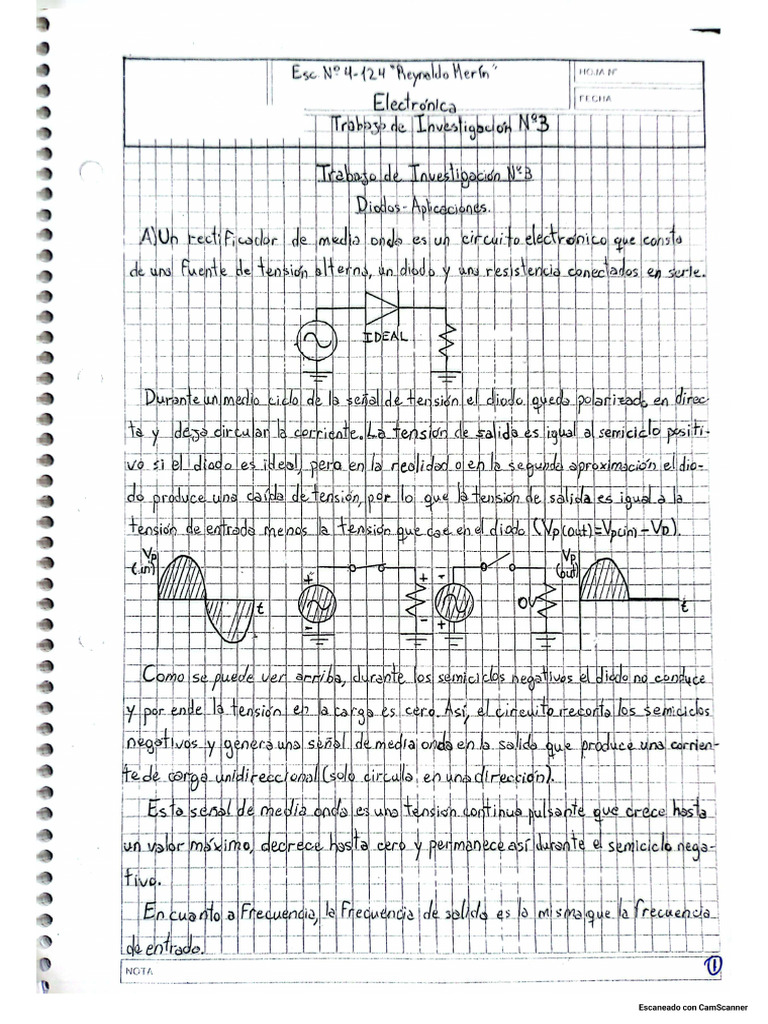 Esc. Nº 4-124 "Reynaldo Merín"
HOJA Nº
FECHA
Electrónica
Trabajo de Investigación Nº3
Trabajo de Investigación Nº3
Diodos-Aplicaciones.
A) Un rectificador de media onda es un circuito electrónico que consta
de una fuente de tensión alterna, un diodo y una resistencia conectados en serie.
IDEAL
Durante un medio ciclo de la señal de tensión el diodo queda polarizado en direc-
ta y deja circular la corriente. La tensión de salida es igual al semiciclo positi-
vo si el diodo es ideal, pero en la realidad o en la segunda aproximación el dio-
do produce una caída de tensión, por lo que la tensión de salida es igual a la
tensión de entrada menos la tensión que cae en el diodo (Vp(out)=Vp(in)-VD).
Vp
(in)
t
+
-
+
-
-
+
0V
Vp
(out)
t
Como se puede ver arriba, durante los semiciclos negativos el diodo no conduce
y por ende la tensión en la carga es cero. Así, el circuito recorta los semiciclos
negativos y genera una señal de media onda en la salida que produce una corrien-
te de carga unidireccional (solo circula en una dirección).
Esta señal de media onda es una tensión continua pulsante que crece hasta
un valor máximo, decrece hasta cero y permanece así durante el semiciclo nega-
tivo.
En cuanto a frecuencia, la frecuencia de salida es la misma que la frecuencia
de entrada.
NOTA
1
Escaneado con CamScanner